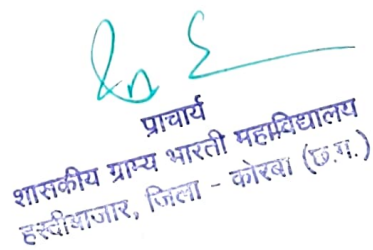 प्राचार्य
शासकीय ग्राम्य भारती महाविद्यालय
हरदीबाजार, जिला - कोरबा (छ.ग.)